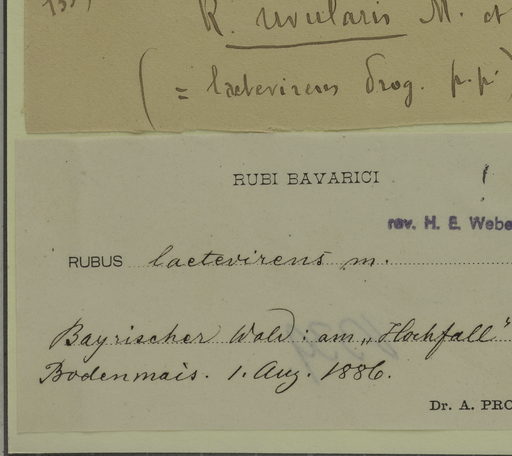 R. uvularis M. et
( = laetevirens Prog. p.p.
RUBI BAVARICI !
rev. H. E. Webe
RUBUS laetevirens m.
Bayrischer Wald: am „Hochfall"
Bodenmais. 1. Aug. 1886.
Dr. A. PRO